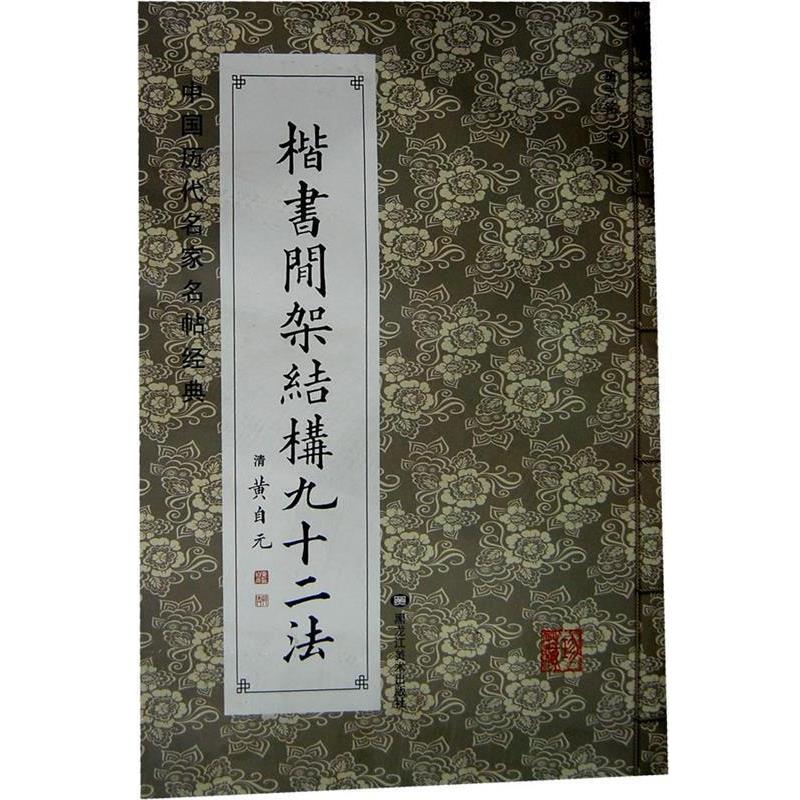 中国历代名家名帖经典
楷書間架結構九十二法
清 黄自元
黑龙江美术出版社